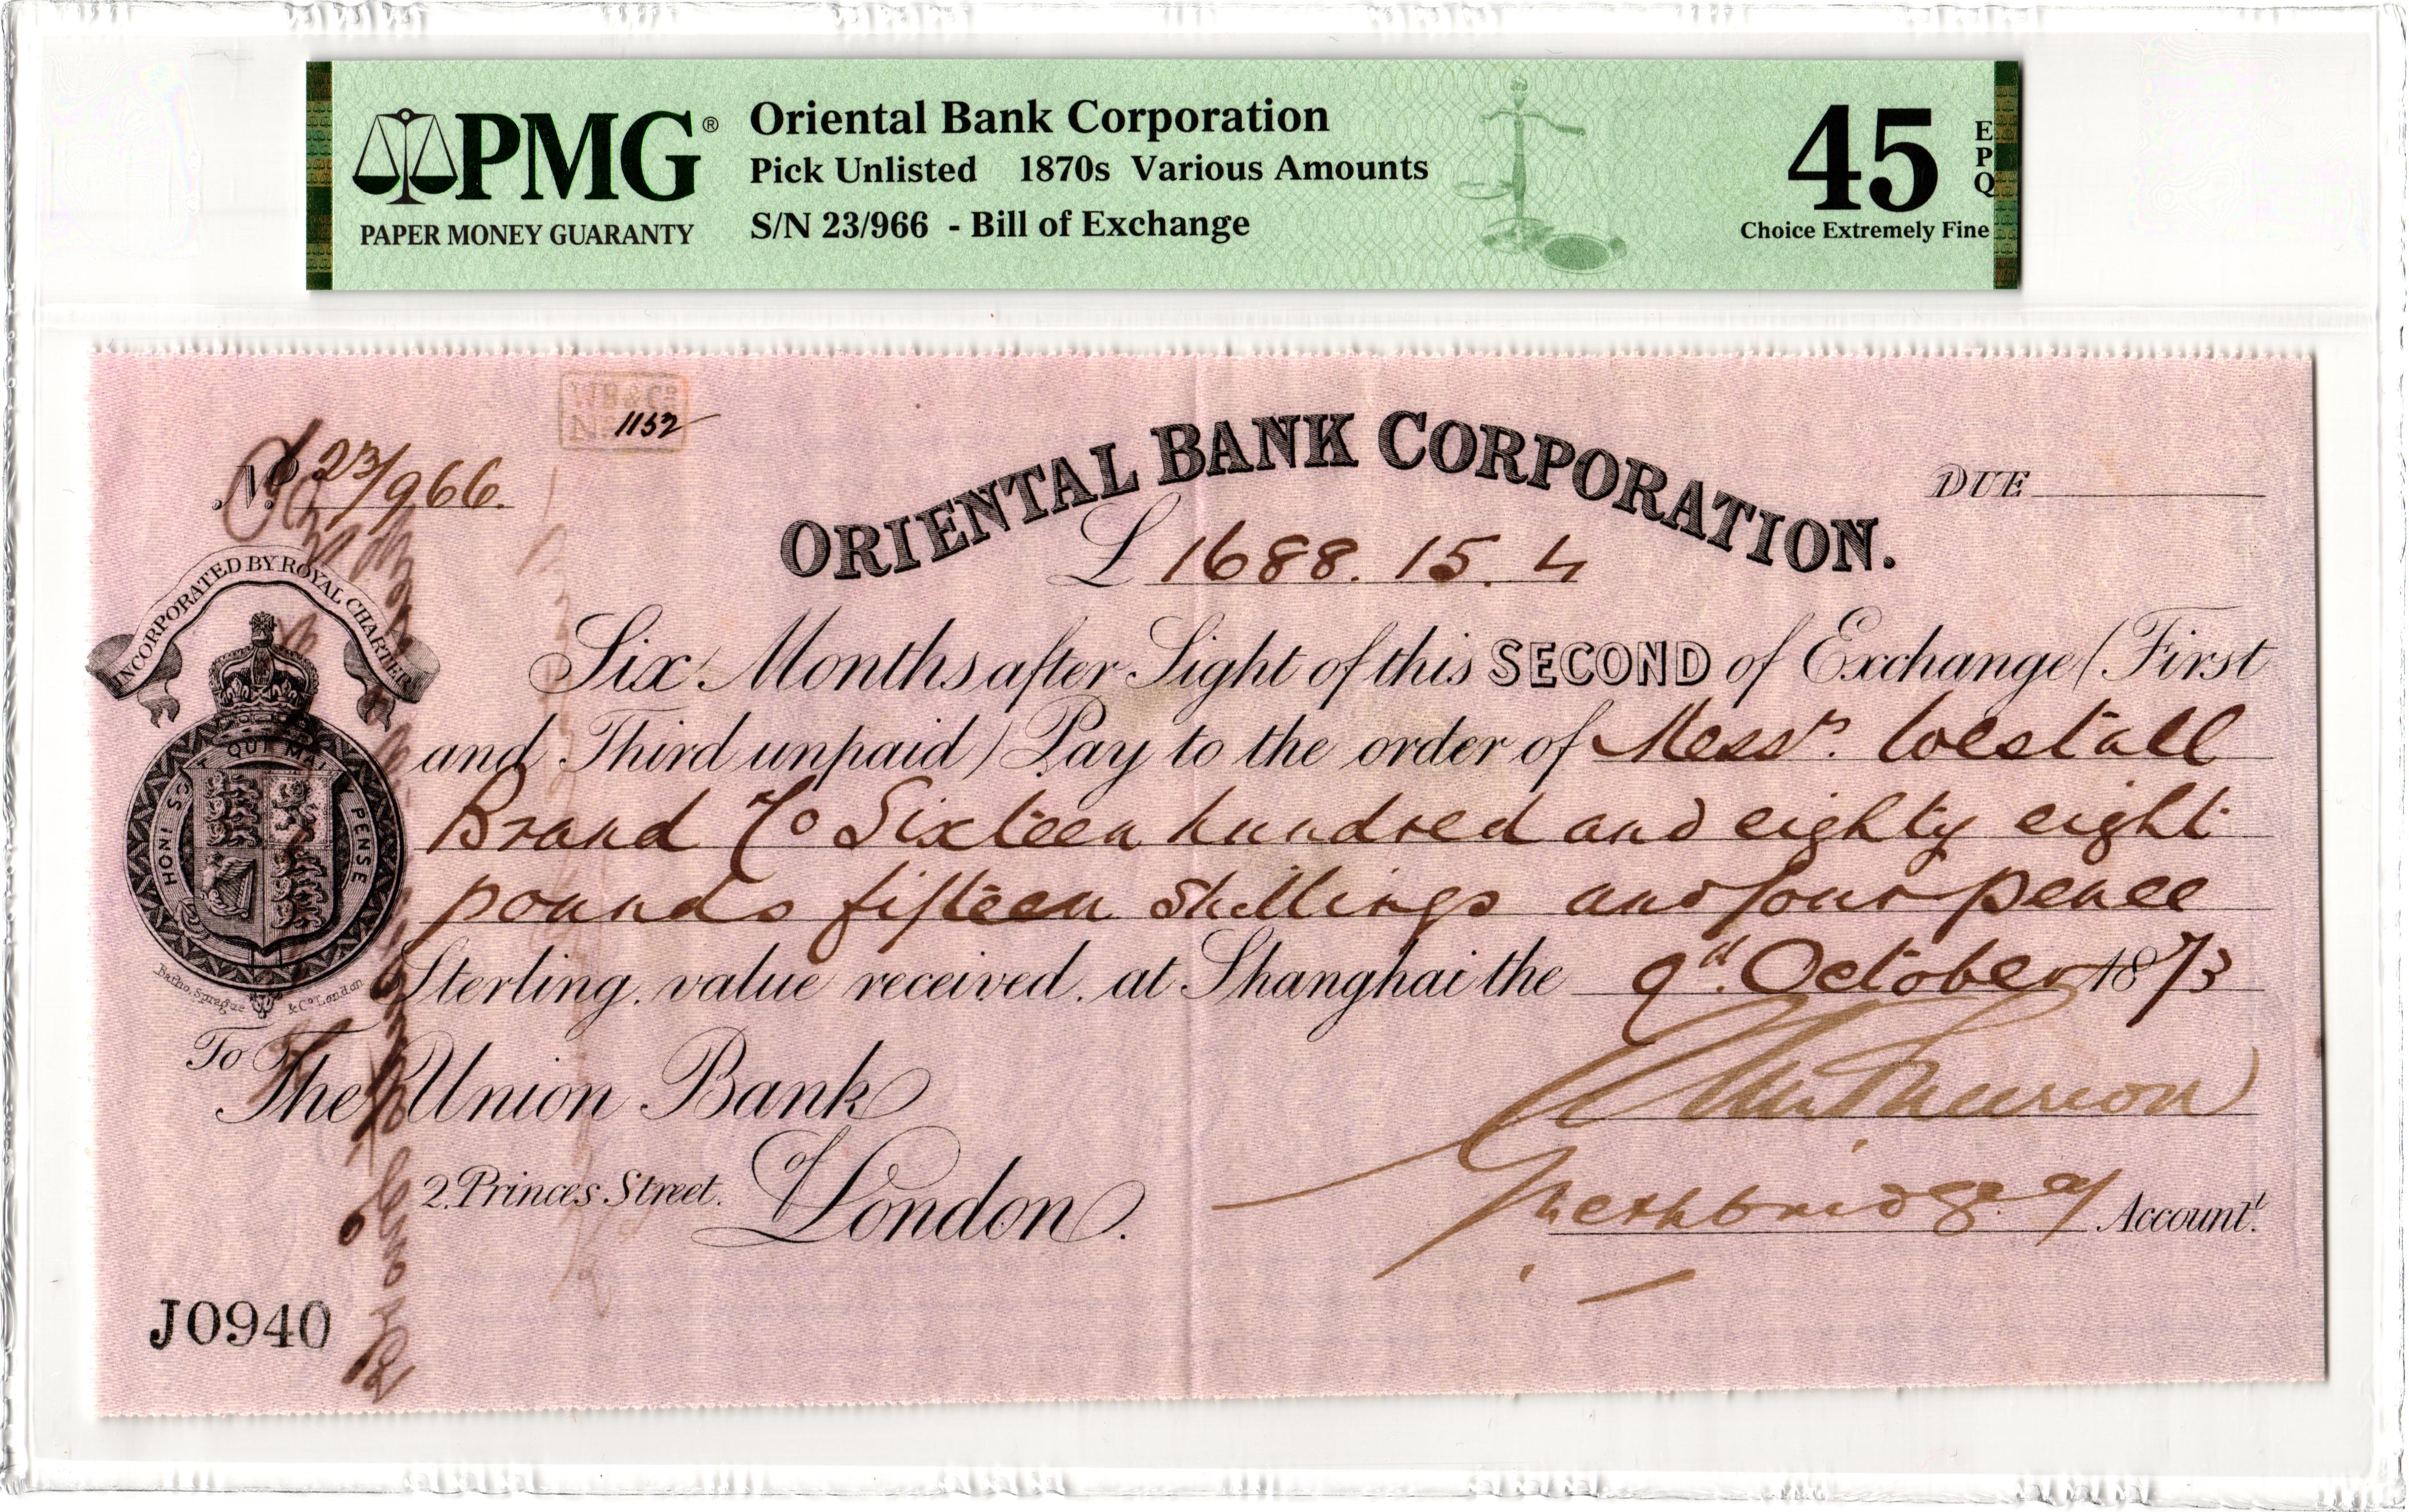 PMG®
PAPER MONEY GUARANTY
Oriental Bank Corporation
Pick Unlisted 1870s Various Amounts
S/N 23/966 - Bill of Exchange
45
EPQ
Choice Extremely Fine
1152
No. 23/966.
ORIENTAL BANK CORPORATION.
DUE
£ 1688. 15. 4
INCORPORATED BY ROYAL CHARTER
HONI SOIT QUI MAL Y PENSE
Six Months after Sight of this SECOND of Exchange (First
and Third unpaid) Pay to the order of Messrs. Westall
Brand & Co Sixteen hundred and eighty eight
pounds fifteen Shillings and four pence
Sterling, value received, at Shanghai the 9th October 1873
Batho, Sprague & Co. London
To
The Union Bank
2. Princes Street. of London.
Account.
J0940